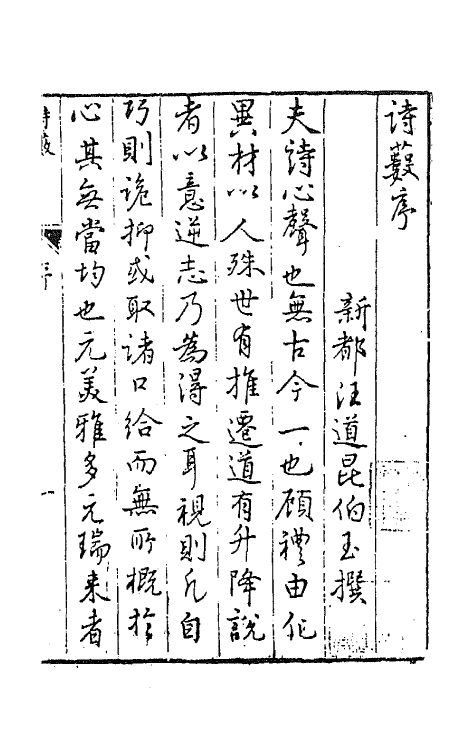 詩藪序
新都汪道昆伯玉撰
夫詩心聲也無古今一也顧禮由代
異材以人殊世有推遷道有升降說
者以意逆志乃為得之耳視則凡自
巧則詭抑或取諸口給而無所概於
心其無當均也元美雅多元瑞来者
詩藪
序
一